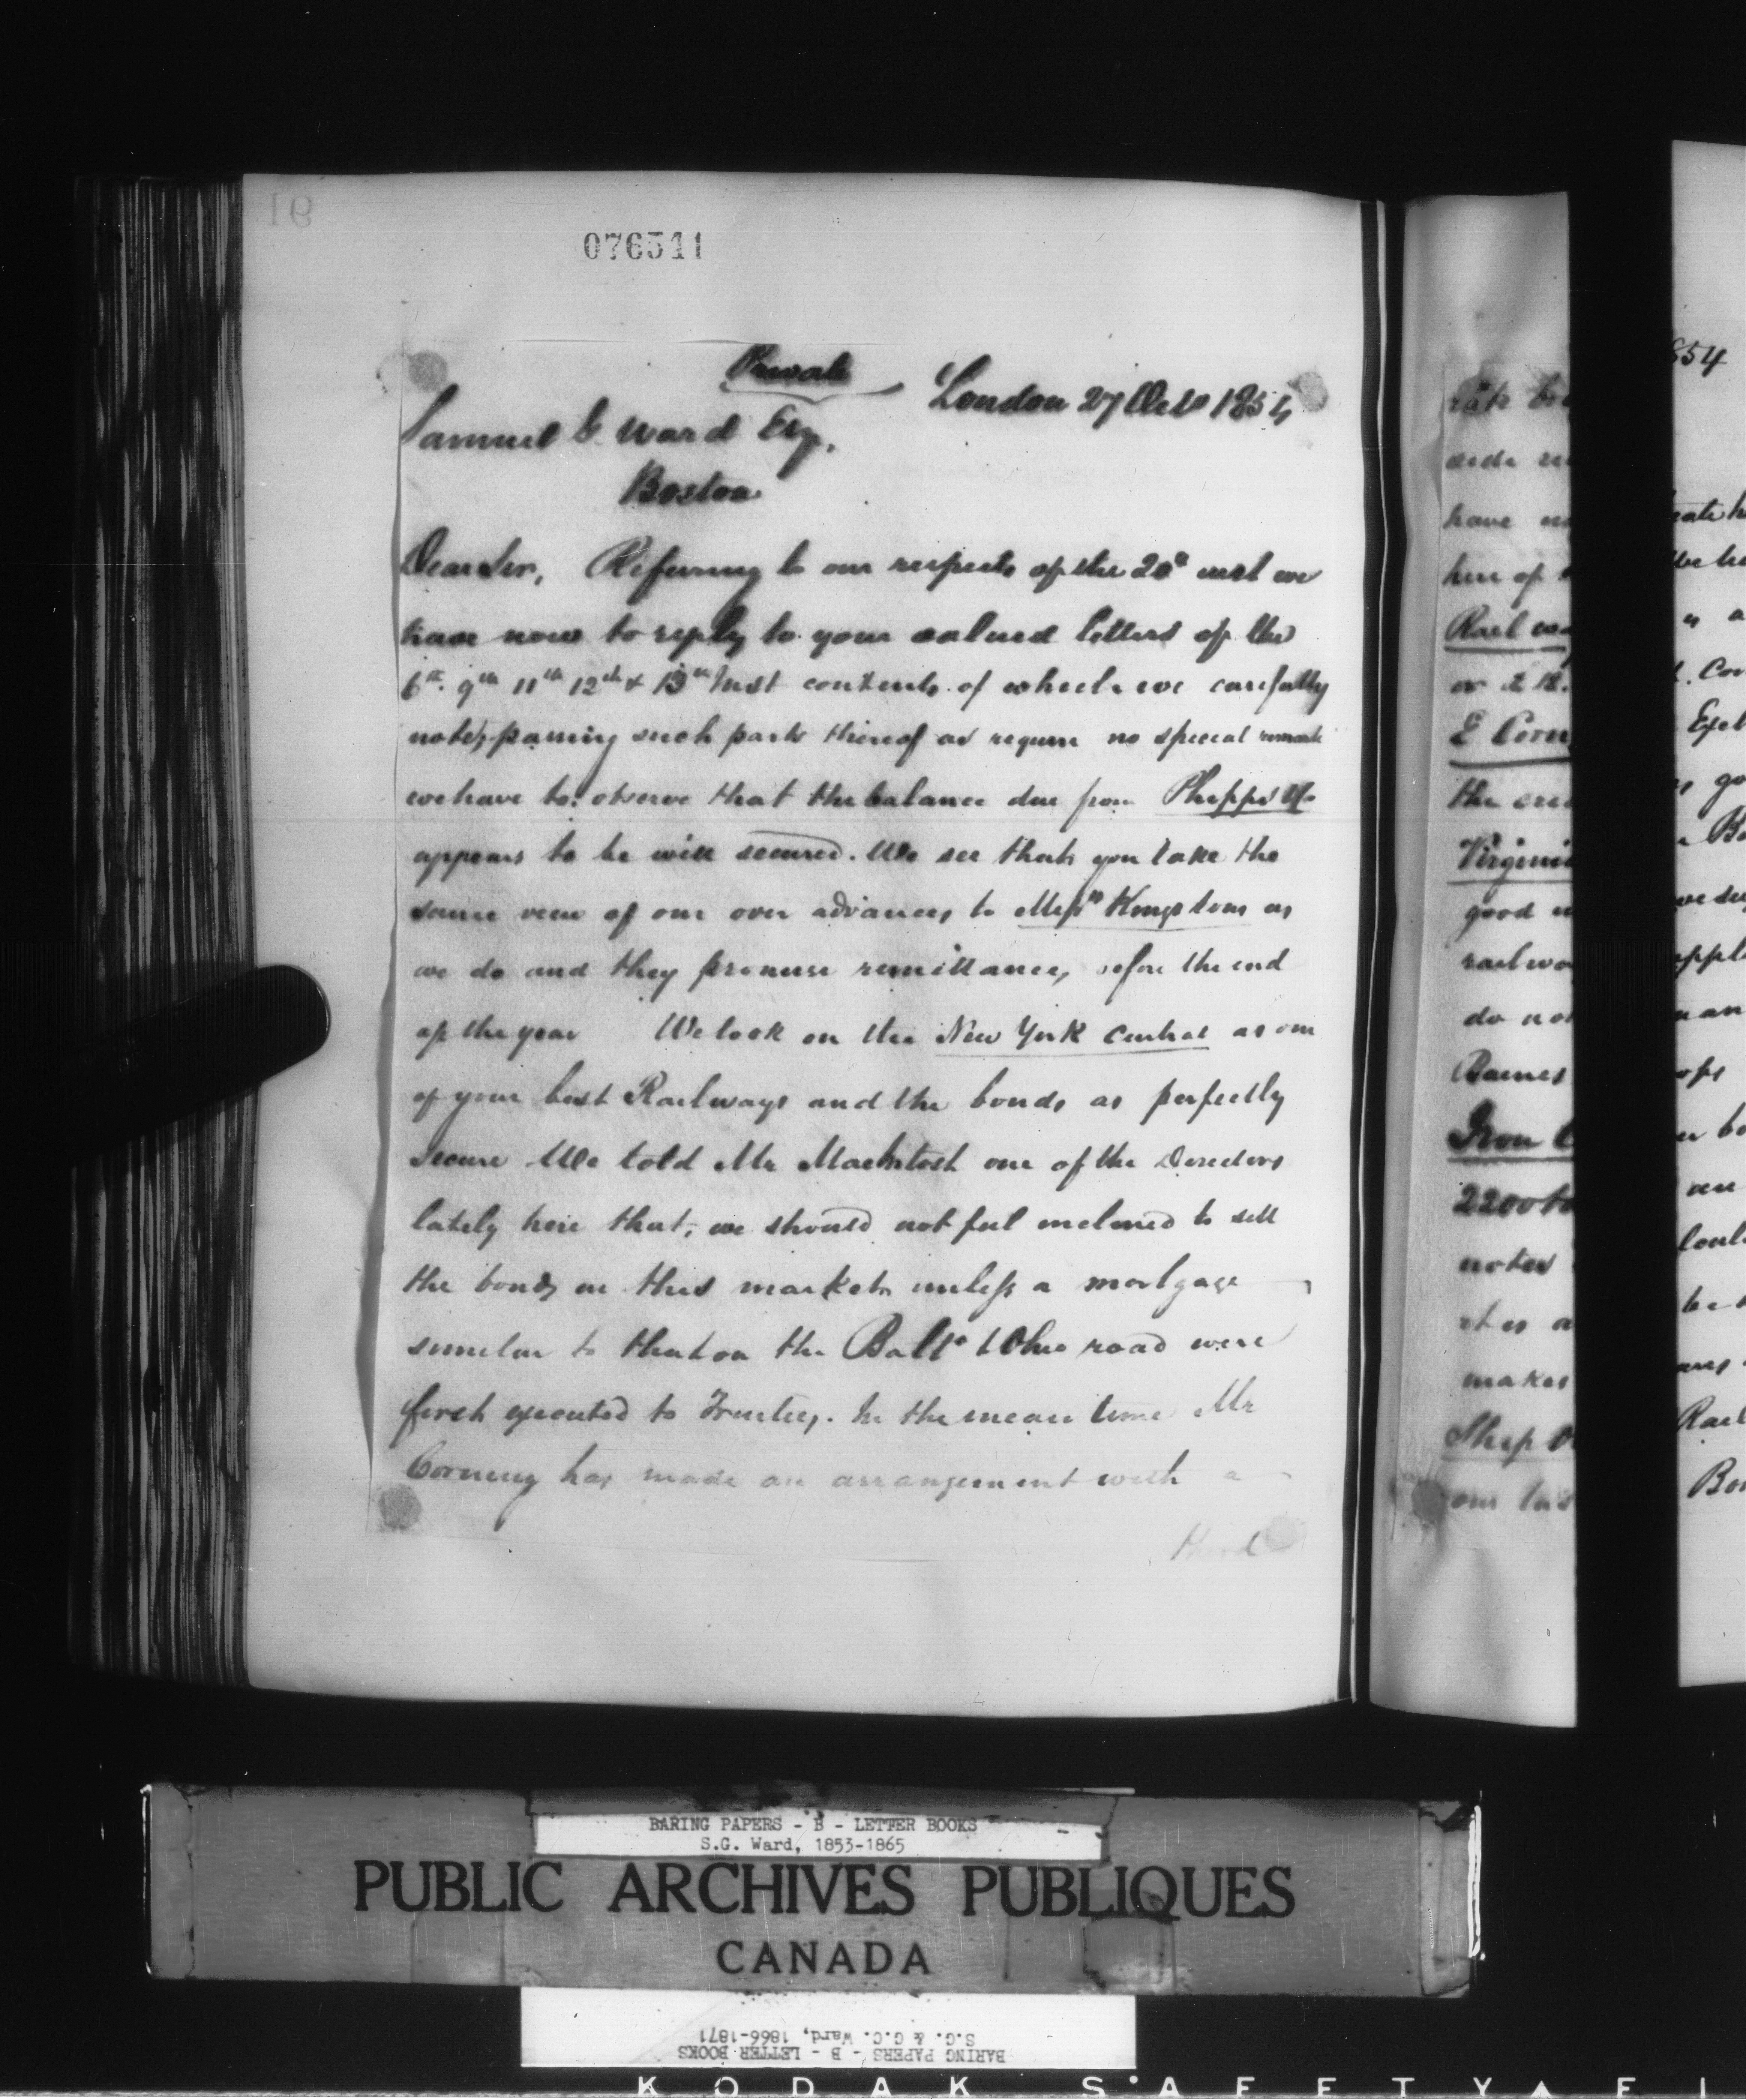 16
076511
Private
London 27 Octo 1854
Samuel G Ward Esq.
Boston
Dear Sir, Referring to our respects of the 20th inst we
have now to reply to your valued letters of the
6th 9th 11th 12th & 13th Inst contents of which we carefully
note, passing such parts thereof as require no special remark
we have to observe that the balance due from Phipps & Co
appears to be well secured. We see that you take the
same view of our over advances to Messrs Kingstons as
we do and they promise remittances, before the end
of the year We look on the New York Central as one
of your best Railways and the bonds as perfectly
secure We told Mr MacIntosh one of the Directors
lately here that, we should not feel inclined to sell
the bonds in this market unless a mortgage
similar to that on the Balto & Ohio road were
first executed to Trustees. In the mean time Mr
Corning has made an arrangement with a
third
rate
side
have
here of
Rail
E Corn
the
Virginia
good
railwa
do not
Barnes
Iron
2200 to
notes
it is a
makes
Ship
our las
854
Cor
go
Bo
appl
ops
an
be
Rail
Bo
BARING PAPERS - B - LETTER BOOKS
S.G. Ward, 1853-1865
PUBLIC ARCHIVES PUBLIQUES
CANADA
S.G. & G.C. Ward, 1866-1871
BARING PAPERS - B - LETTER BOOKS
KODAK SAFETY FI